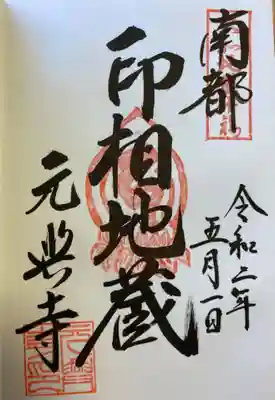 南都
令和二年
五月一日
印相地蔵
元興寺